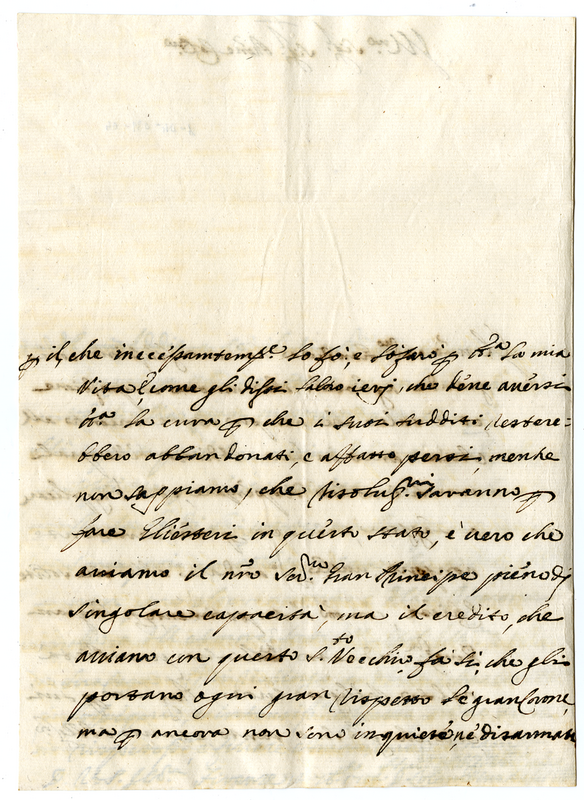 il che incessantem.te lo fò, e lo farò p tt.a la mia
vita, e come gli dissi l'altro ieri, che dene aversi
tt.a la cura p che i suoi sudditi restere=
bbero abbandonati, e affatto persi, mentre
non sappiamo, che risoluz.ni saranno p
fare gli esteri in questo stato, è vero che
aviamo il nr̃o Ser.mo Gran Principe pieno di
singolare capacità, ma il credito, che
aviano con questo S.to Vecchio, fa si, che gli
portano ogni gran rispetto le gran Corone,
ma p ancora non sono inquiete, nè disarmate